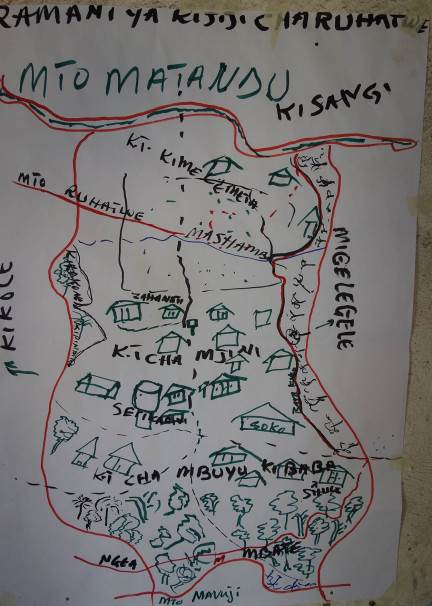 RAMANI YA KIJIJI CHA RUHATWE
MTO MATANDU
KISANGI
KT. KIME
ETMETA
MTO RUHATWE
MASHAMBA
MIGELEGELE
KIKOLE
ZAHANATI
KTCHA MJINI
SOKO
KT CHA MBUYU
KIBABA
SHULE
NGEA
MBATE
MTO MAVUJI